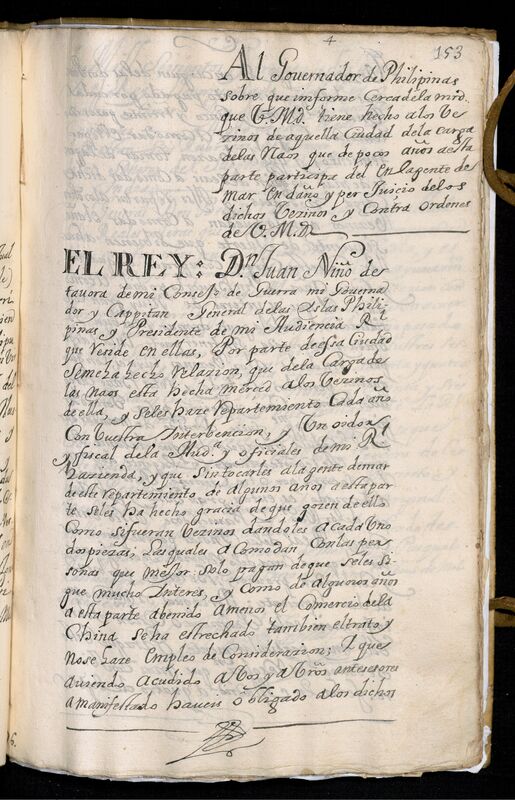 4
153
Al Governador de Philipinas
sobre que imforme Cercadela mrd.
que V.M.d. tiene hecho alos Ve
zinos de aquella Ciudad dela carga
delas Naos que depocos años aesta
parte participa del En lagente de
mar En daño y per Juicio delos
dichos Vezinos y Contra ordenes
de V.M.D.
EL REY: Dn Juan Niño de
tavora demi Consejo de Guerra mi Governa
dor y Cappitan General delas Islas Phili
pinas, y Presidente de mi Audiencia Rl
que Reside En ellas, Por parte deessa Ciudad
Semeha hecho Relazion, que dela Cargade
las Naos esta hecha merced alos Vezinos
de ella, y Seles haze Repartemiento Cada año
Con buestra Interbencion, y Un oydor
y fiscal dela Aud.a y oficiales de mi Rl
hazienda, y que Sintocarles alagente demar
deeste repartemiento de algunos años aestapar
te Seles ha hecho gracia deque gozen deello
Como sifueran Vezinos dandoles acada Uno
dospiezas, Lasquales aComodan Conlas per
sonas que mejor Solo pagan deque seles Si
gue mucho Interes, y Como de algunos años
aesta parte abenido amenos el Comercio dela
China Seha estrechado tambien eltrato y
Nose haze Empleo de Considerazion; Y que
aviendo acudido a Vos y a Vros antesesores
amanifestado haveis obligado alos dichos